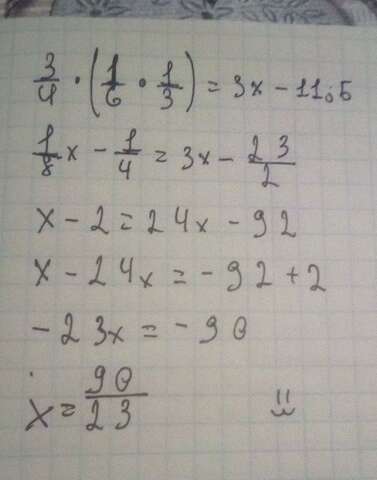 3/4 · (1/6 · 1/3) = 3x - 11,5
1/8 x - 1/4 = 3x - 23/2
x - 2 = 24x - 92
x - 24x = -92 + 2
-23x = -90
x = 90/23